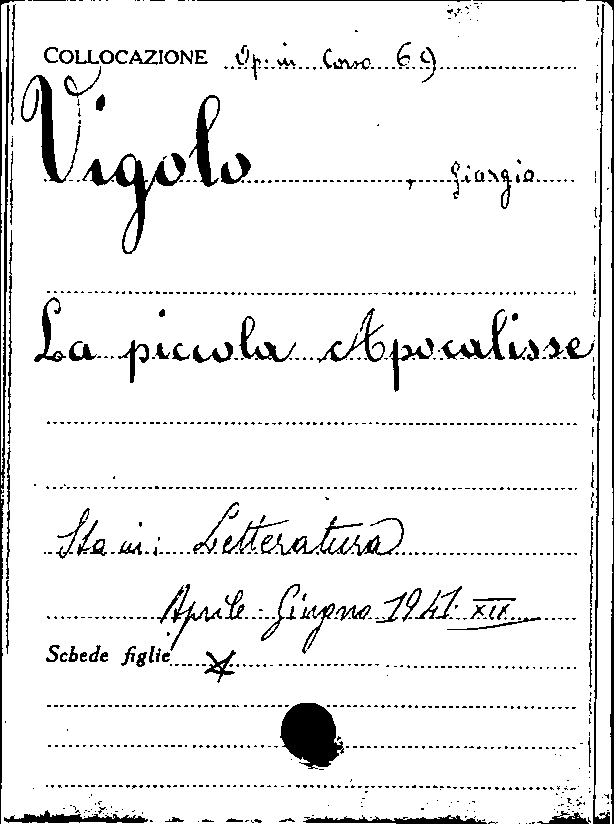 COLLOCAZIONE Op. in Corso 69
Vigolo, Giorgio
La piccola Apocalisse
Sta in: Letteratura
Aprile - Giugno 1941. XIX
Schede figlie